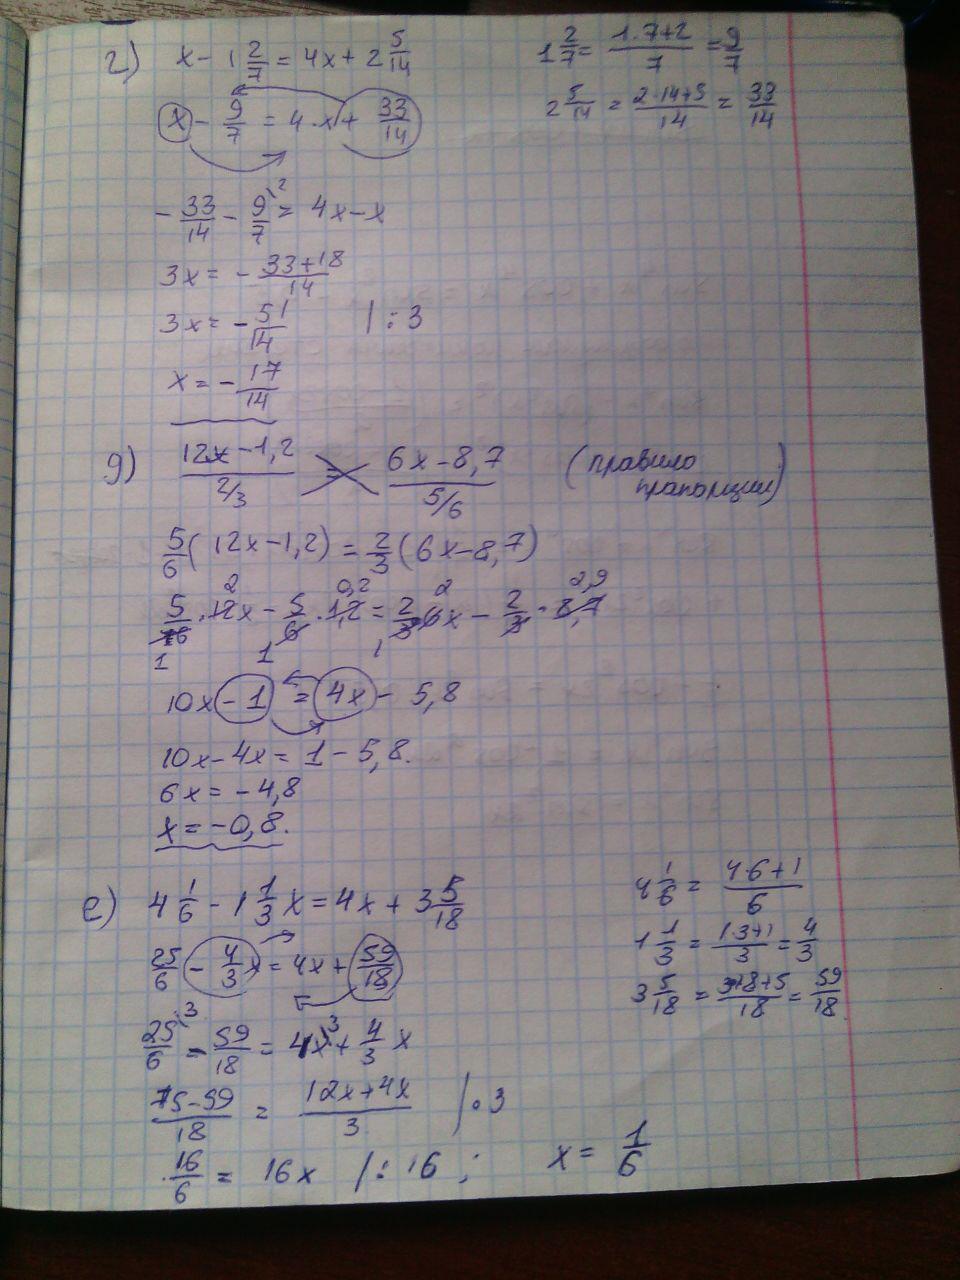 г) x - 1 2/7 = 4x + 2 5/14
1 2/7 = (1·7+2)/7 = 9/7
x - 9/7 = 4·x + 33/14
2 5/14 = (2·14+5)/14 = 33/14
- 33/14 - 9/7 \2 = 4x - x
3x = - (33+18)/14
3x = - 51/14 | : 3
x = - 17/14
д) (12x - 1,2)/(2/3) = (6x - 8,7)/(5/6) (правило
прапорции)
5/6 (12x - 1,2) = 2/3 (6x - 8,7)
2 0,2 2 2,9
5/6 · 12x - 5/6 · 1,2 = 2/3 · 6x - 2/3 · 8,7
1 1 1
10x - 1 = 4x - 5,8
10x - 4x = 1 - 5,8.
6x = - 4,8
x = - 0,8.
е) 4 1/6 - 1 1/3 x = 4x + 3 5/18
4 1/6 = (4·6+1)/6
25/6 - 4/3 x = 4x + 59/18
1 1/3 = (1·3+1)/3 = 4/3
3 5/18 = (3·18+5)/18 = 59/18
25/6 \3 - 59/18 = 4x \3 + 4/3 x
(75-59)/18 = (12x+4x)/3 | · 3
16/6 = 16x | : 16 ; x = 1/6